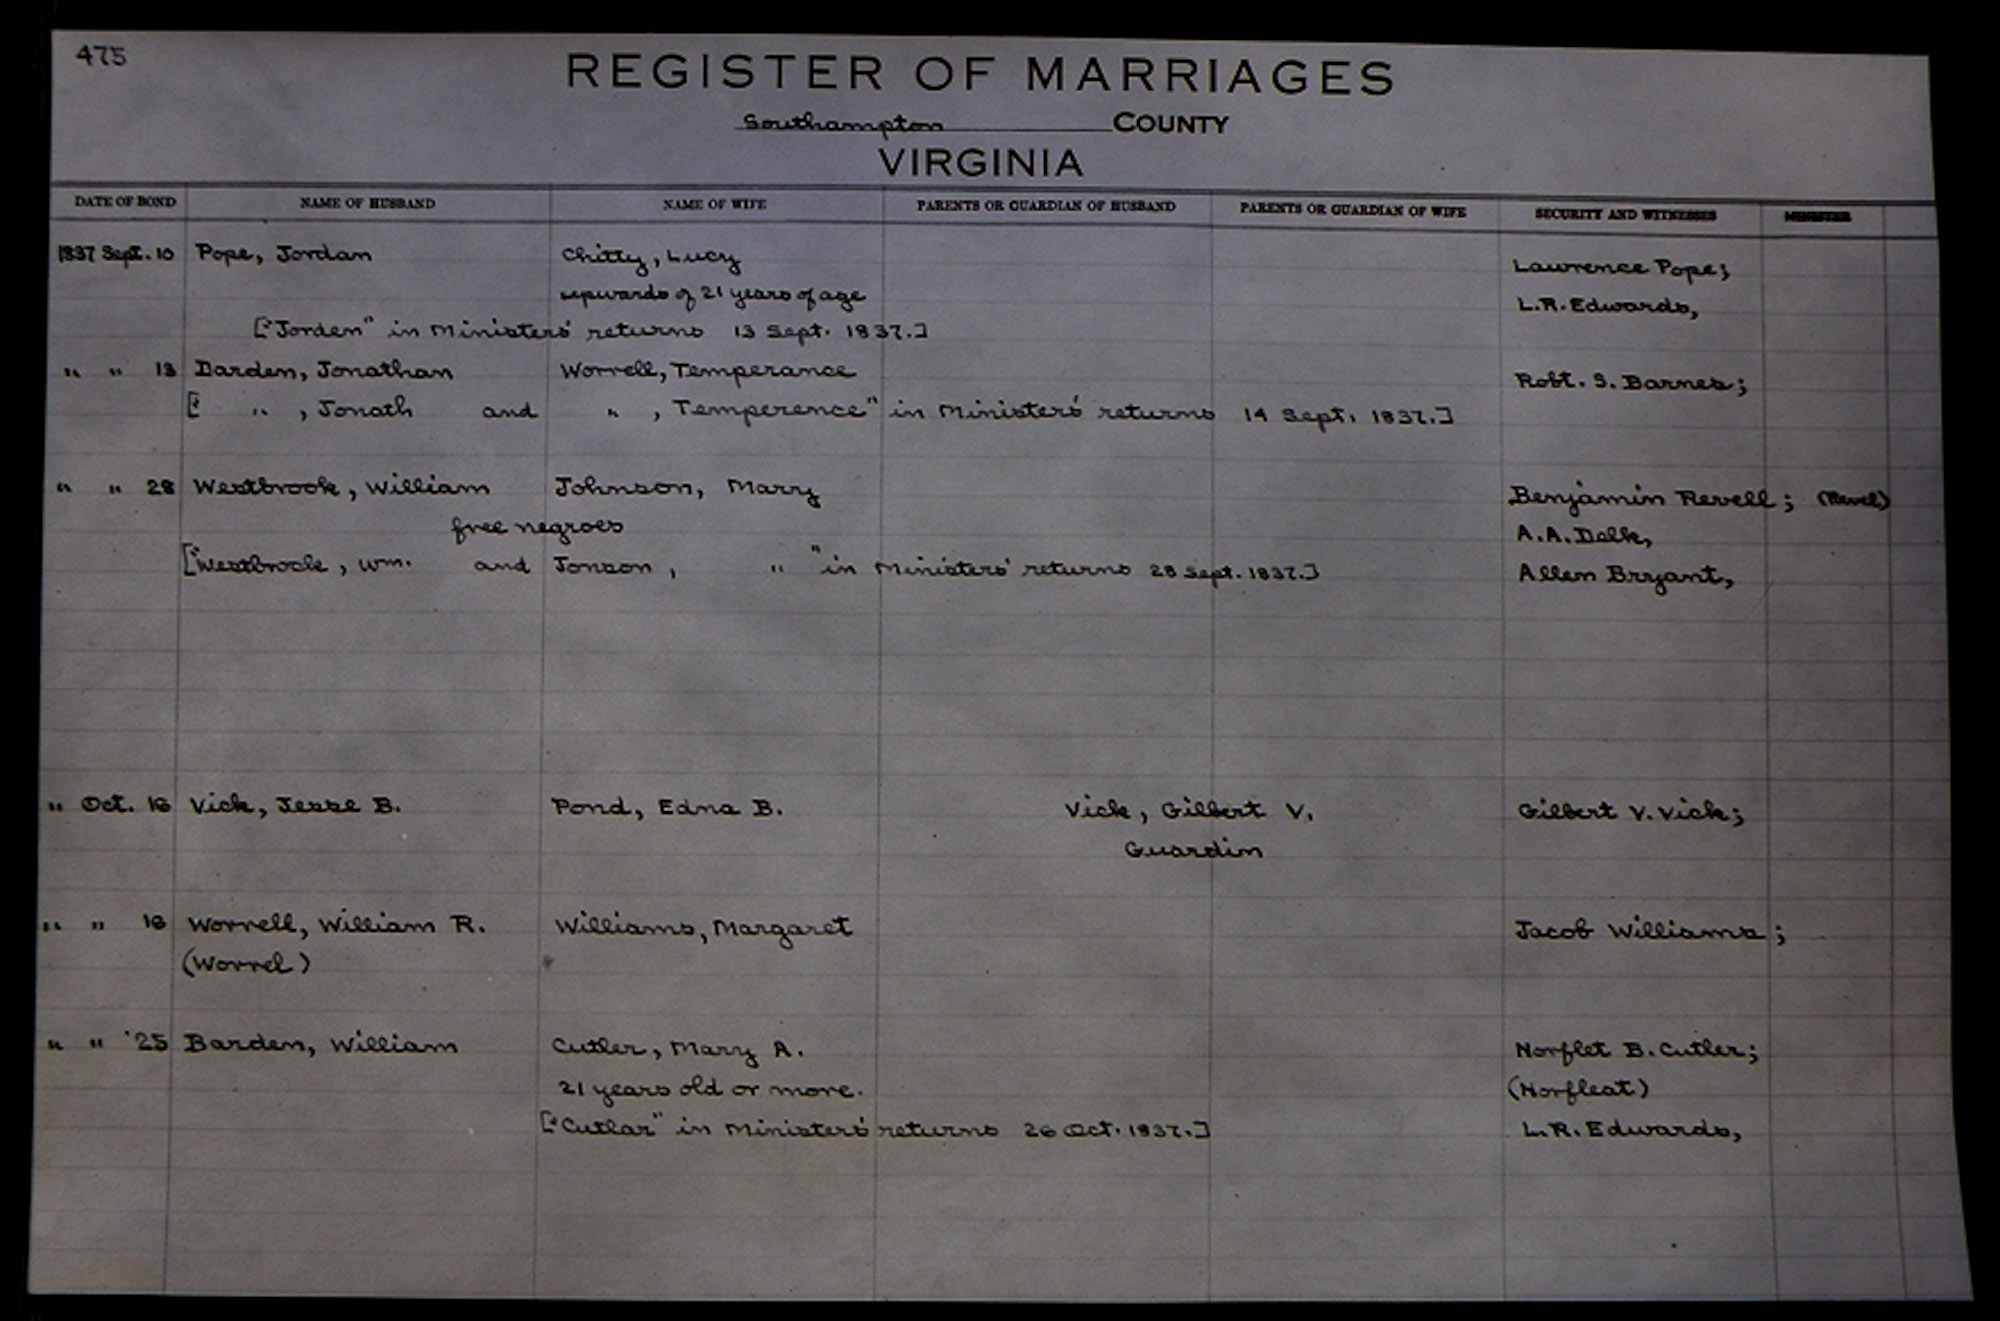 475
REGISTER OF MARRIAGES
Southampton COUNTY
VIRGINIA
DATE OF BOND NAME OF HUSBAND NAME OF WIFE PARENTS OR GUARDIAN OF HUSBAND PARENTS OR GUARDIAN OF WIFE SECURITY AND WITNESSES MINISTER
1837 Sept. 10 Pope, Jordan Chitty, Lucy Lawrence Pope;
upwards of 21 years of age L.R. Edwards,
["Jorden" in Ministers' returns 13 Sept. 1837.]
" " 13 Darden, Jonathan Worrell, Temperance Robt. S. Barnes;
[" " , Jonath and " , Temperence" in Ministers' returns 14 Sept. 1837.]
" " 28 Westbrook, William Johnson, Mary Benjamin Revell; (Revel)
free negroes A.A. Delk,
["Westbrock, Wm. and Jonson, " " in Ministers' returns 28 Sept. 1837.] Allen Bryant,
" Oct. 16 Vick, Jesse B. Pond, Edna B. Vick, Gilbert V. Gilbert V. Vick;
Guardin
" " 16 Worrell, William R. Williams, Margaret Jacob Williams;
(Worrel)
" " 25 Barden, William Cutler, Mary A. Norflet B. Cutler;
21 years old or more. (Norfleat)
["Cutlar" in Ministers' returns 26 Oct. 1837.] L.R. Edwards,